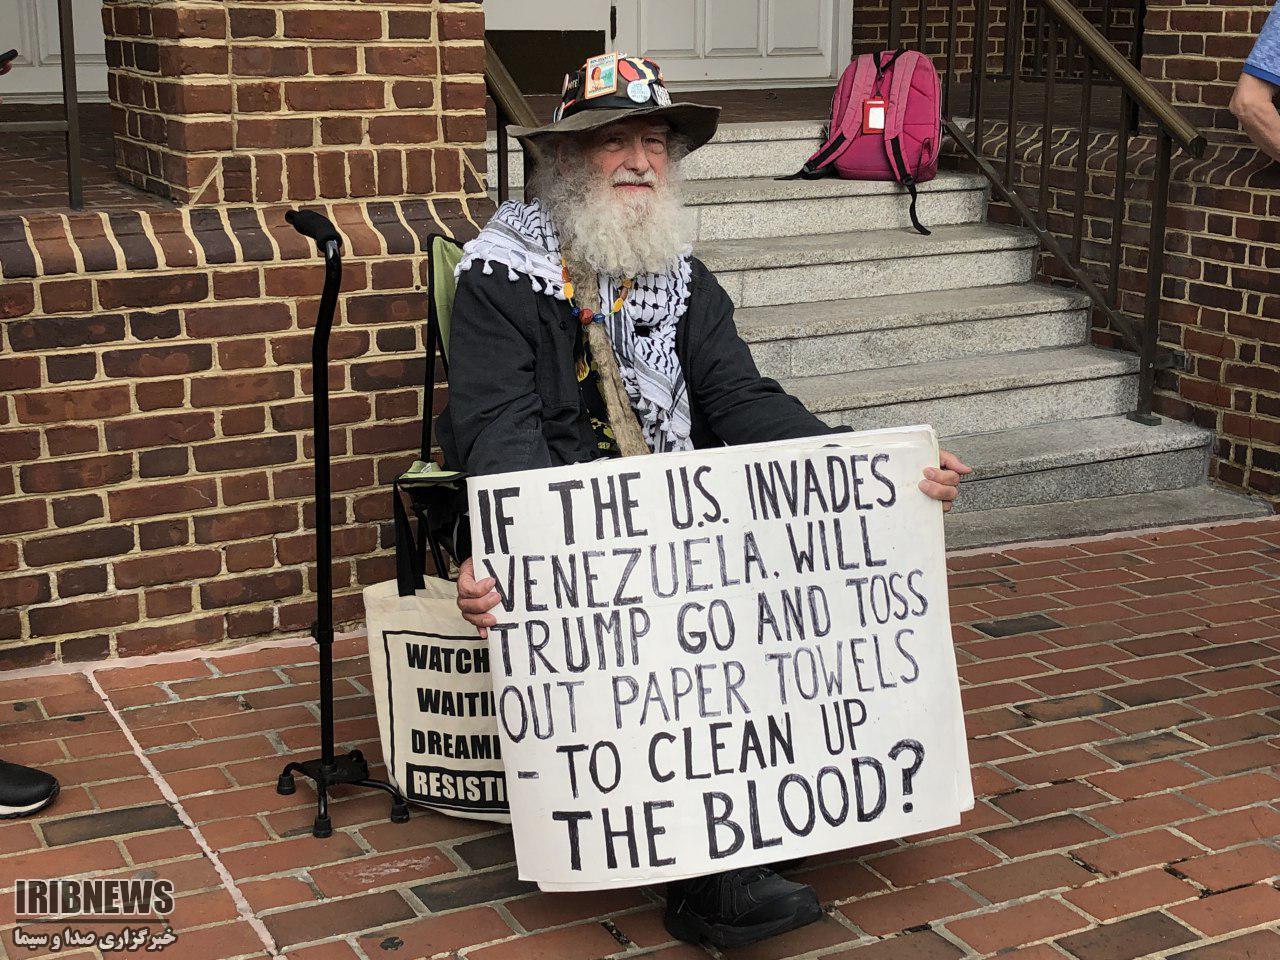 IF THE U.S. INVADES
VENEZUELA. WILL
TRUMP GO AND TOSS
OUT PAPER TOWELS
- TO CLEAN UP
THE BLOOD?
WATCH
WAITI
DREAMI
RESISTI
IRIBNEWS
خبرگزاری صدا و سیما